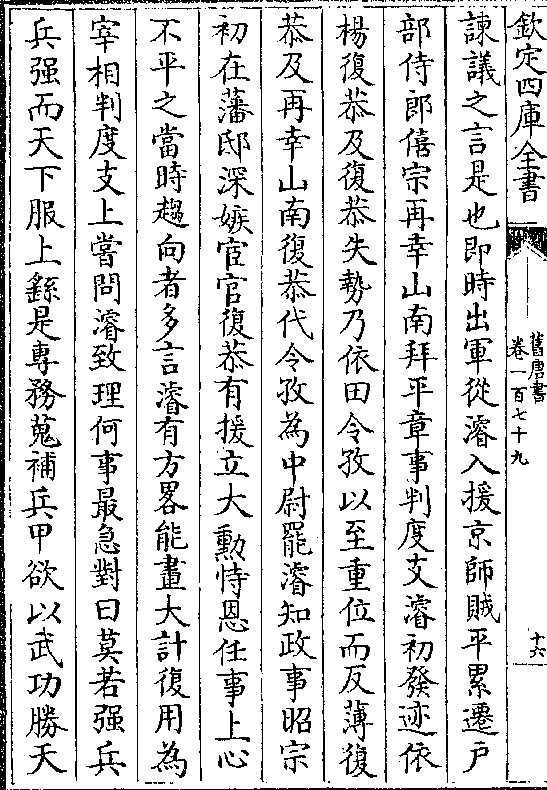 欽定四庫全書
舊唐書
卷一百七十九
十六
諫議之言是也即時出軍從濬入援京師賊平累遷户
部侍郎僖宗再幸山南拜平章事判度支濬初發迹依
楊復恭及復恭失勢乃依田令孜以至重位而反薄復
恭及再幸山南復恭代令孜為中尉罷濬知政事昭宗
初在藩邸深嫉宦官復恭有援立大勲恃恩任事上心
不平之當時趨向者多言濬有方畧能畫大計復用為
宰相判度支上嘗問濬致理何事最急對曰莫若强兵
兵强而天下服上繇是專務蒐補兵甲欲以武功勝天